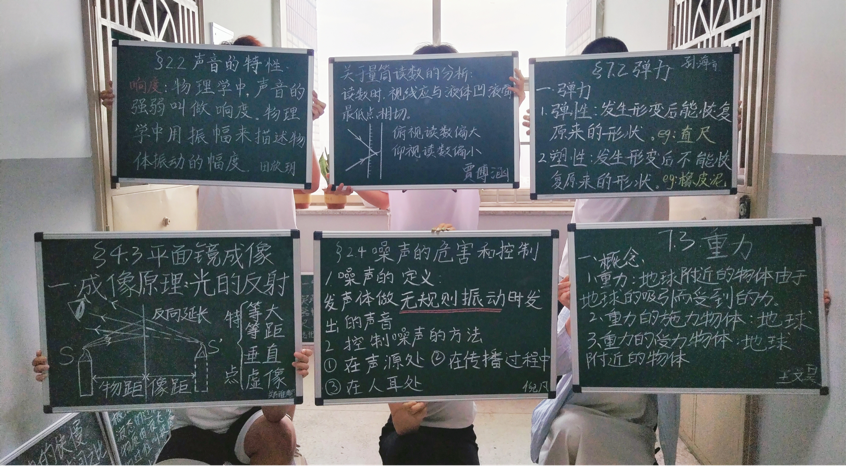 §2.2 声音的特性
响度:物理学中,声音的
强弱叫做响度.物理
学中用振幅来描述物
体振动的幅度.
关于量筒读数的分析:
读数时,视线应与液体凹液面
最低点相切.
俯视读数偏大
仰视读数偏小
§7.2 弹力
一.弹力
1.弹性:发生形变后能恢复
原来的形状.eg:直尺
2.塑性:发生形变后不能恢
复原来的形状.eg:橡皮泥
§4.3 平面镜成像
一.成像原理:光的反射
反向延长
S
S'
物距
像距
特点
等大
等距
垂直
虚像
§2.4 噪声的危害和控制
1.噪声的定义:
发声体做无规则振动时发
出的声音
2.控制噪声的方法
①在声源处 ②在传播过程中
③在人耳处
7.3 重力
一.概念
1.重力:地球附近的物体由于
地球的吸引而受到的力.
2.重力的施力物体:地球
3.重力的受力物体:地球
附近的物体